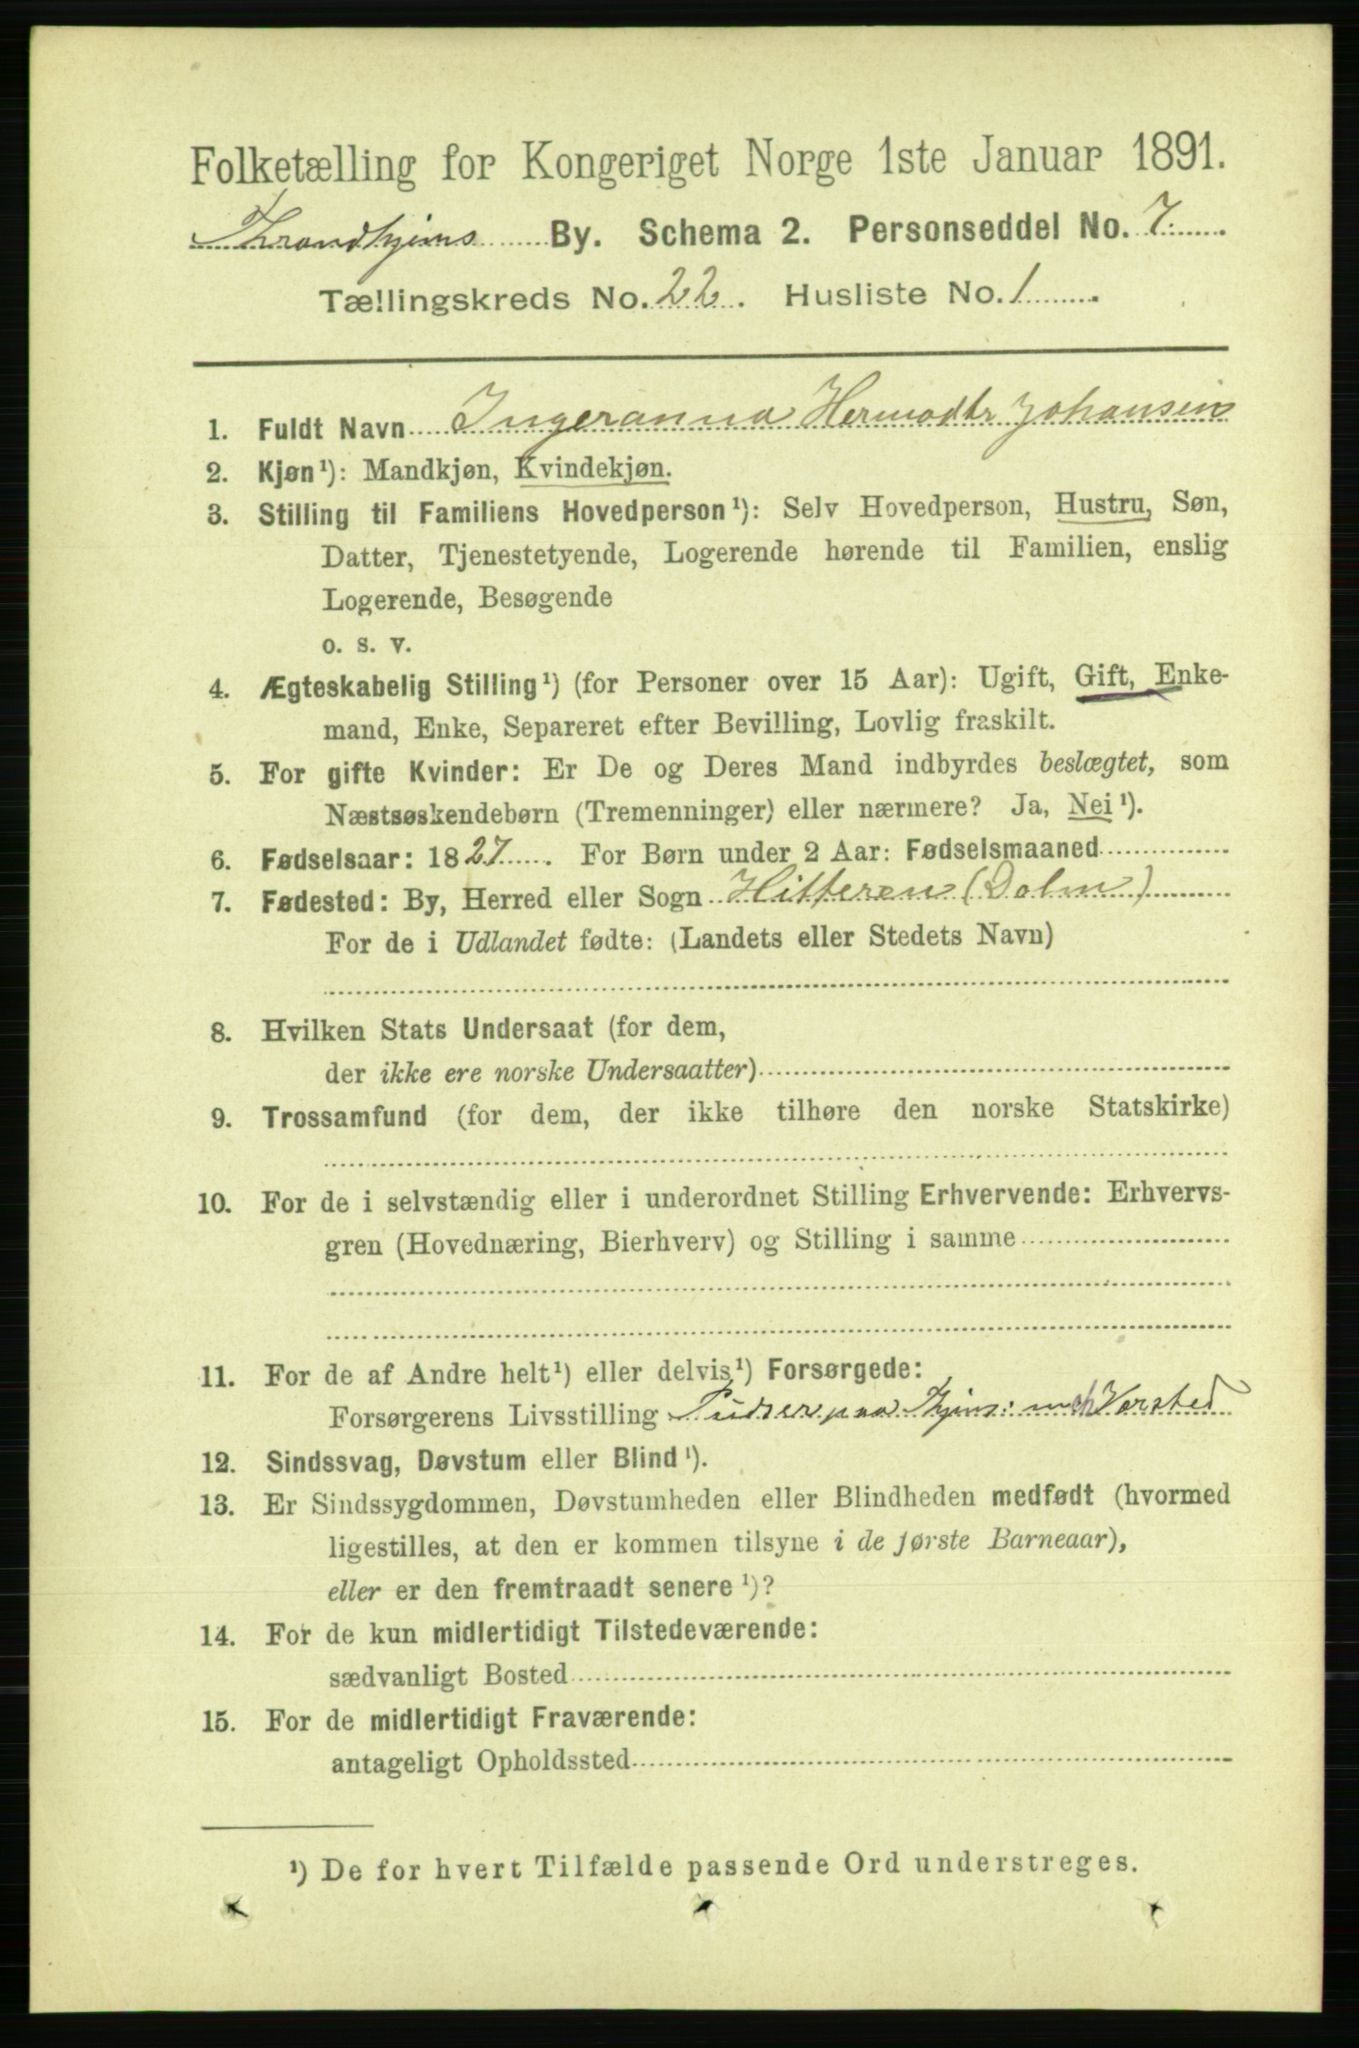 Folketælling for Kongeriget Norge 1ste Januar 1891.
Throndhjems By. Schema 2. Personseddel No. 7
Tællingskreds No. 22. Husliste No. 1
1. Fuldt Navn Ingeranna Hermodtr Johansen
2. Kjøn¹): Mandkjøn, Kvindekjøn.
3. Stilling til Familiens Hovedperson¹): Selv Hovedperson, Hustru, Søn,
Datter, Tjenestetyende, Logerende hørende til Familien, enslig
Logerende, Besøgende
o. s. v.
4. Ægteskabelig Stilling¹) (for Personer over 15 Aar): Ugift, Gift, Enke-
mand, Enke, Separeret efter Bevilling, Lovlig fraskilt.
5. For gifte Kvinder: Er De og Deres Mand indbyrdes beslægtet, som
Næstsøskendebørn (Tremenninger) eller nærmere? Ja, Nei¹).
6. Fødselsaar: 1827. For Børn under 2 Aar: Fødselsmaaned
7. Fødested: By, Herred eller Sogn Hitteren (Dolm)
For de i Udlandet fødte: (Landets eller Stedets Navn)
8. Hvilken Stats Undersaat (for dem,
der ikke ere norske Undersaatter)
9. Trossamfund (for dem, der ikke tilhøre den norske Statskirke)
10. For de i selvstændig eller i underordnet Stilling Erhvervende: Erhvervs-
gren (Hovednæring, Bierhverv) og Stilling i samme
11. For de af Andre helt¹) eller delvis¹) Forsørgede:
Forsørgerens Livsstilling Pudser paa Thjms: mek Værsted
12. Sindssvag, Døvstum eller Blind¹).
13. Er Sindssygdommen, Døvstumheden eller Blindheden medfødt (hvormed
ligestilles, at den er kommen tilsyne i de første Barneaar),
eller er den fremtraadt senere¹)?
14. For de kun midlertidigt Tilstedeværende:
sædvanligt Bosted
15. For de midlertidigt Fraværende:
antageligt Opholdssted
¹) De for hvert Tilfælde passende Ord understreges.